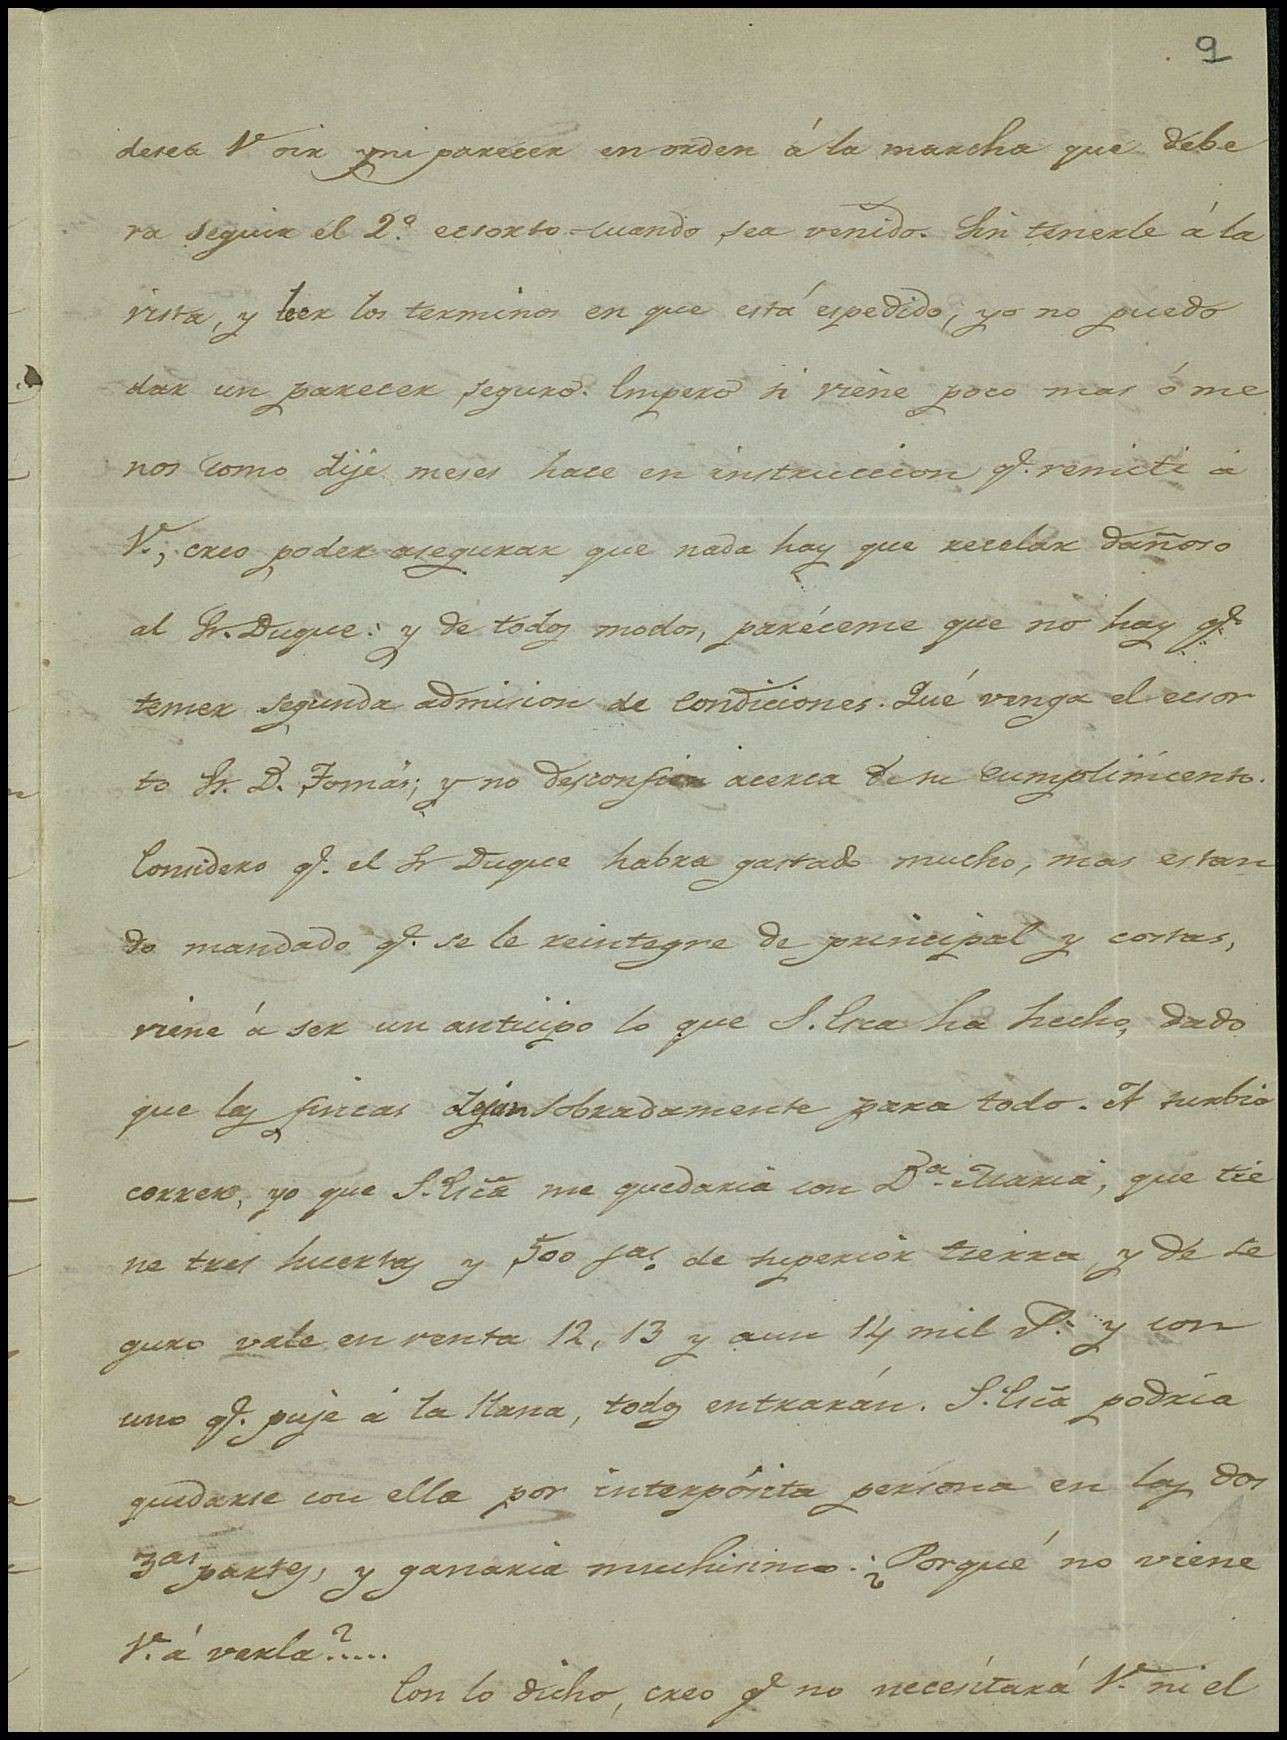 9
desea V. oir mi parecer en orden á la marcha que debe
ra seguir el 2.º ecsorto cuando sea venido. Sin tenerle á la
vista, y leer los terminos en que está espedido, yo no puedo
dar un parecer seguro. Empero si viene poco mas ó me
nos como dije meses hace en instruccion q.e remiti á
V., creo poder asegurar que nada hay que recelar dañoso
al Sr. Duque: y de todos modos, paréceme que no hay q.e
temer segunda admision de condiciones. Qué venga el ecsor
to Sr. D. Tomás; y no desconfie acerca de su cumplimiento.
Considero q.e el Sr Duque habra gastado mucho, mas estan
do mandado q.e se le reintegre de principal y costas,
viene á ser un anticipo lo que S. Eca ha hecho, dado
que las fincas dejan sobradamente para todo. A turbio
correr, yo que S. Eca me quedaria con D.a Maria, que tie
ne tres huertas y 500 fas. de superior tierra y de se
guro vale en renta 12, 13 y aun 14 mil rs. y con
uno q.e puje á la llana, todos entrarán. S. Eca podria
quedarse con ella por interpósita persona en las dos
3as partes, y ganaria muchisimo. ¿Porqué no viene
V. á verla?.....
Con lo dicho, creo q.e no necesitará V. ni el